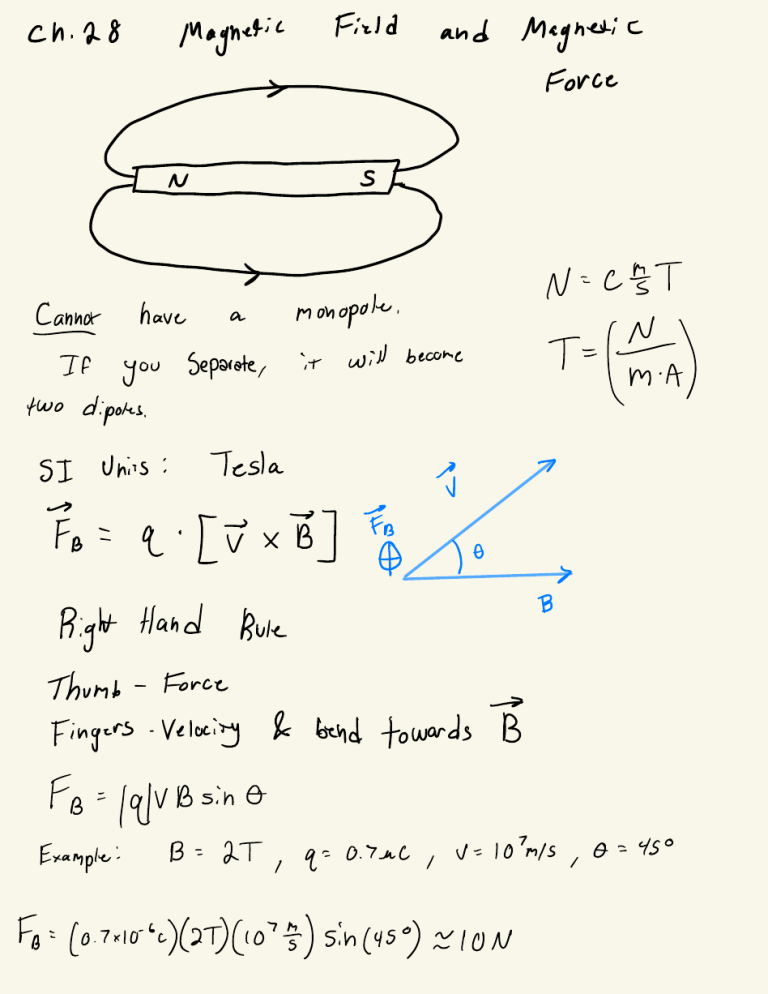 Ch. 28 Magnetic Field and Magnetic
Force
N S
N = C m/s T
Cannot have a monopole.
T = (N / m·A)
If you separate, it will become
two dipoles.
SI Units: Tesla
F⃗_B = q · [v⃗ × B⃗]
v⃗
F⃗_B
θ
B
Right Hand Rule
Thumb - Force
Fingers - Velocity & bend towards B⃗
F_B = |q|VB sin θ
Example: B = 2T, q = 0.7 μC, V = 10⁷ m/s, θ = 45°
F_B = (0.7×10⁻⁶C)(2T)(10⁷ m/s) sin(45°) ≈ 10N